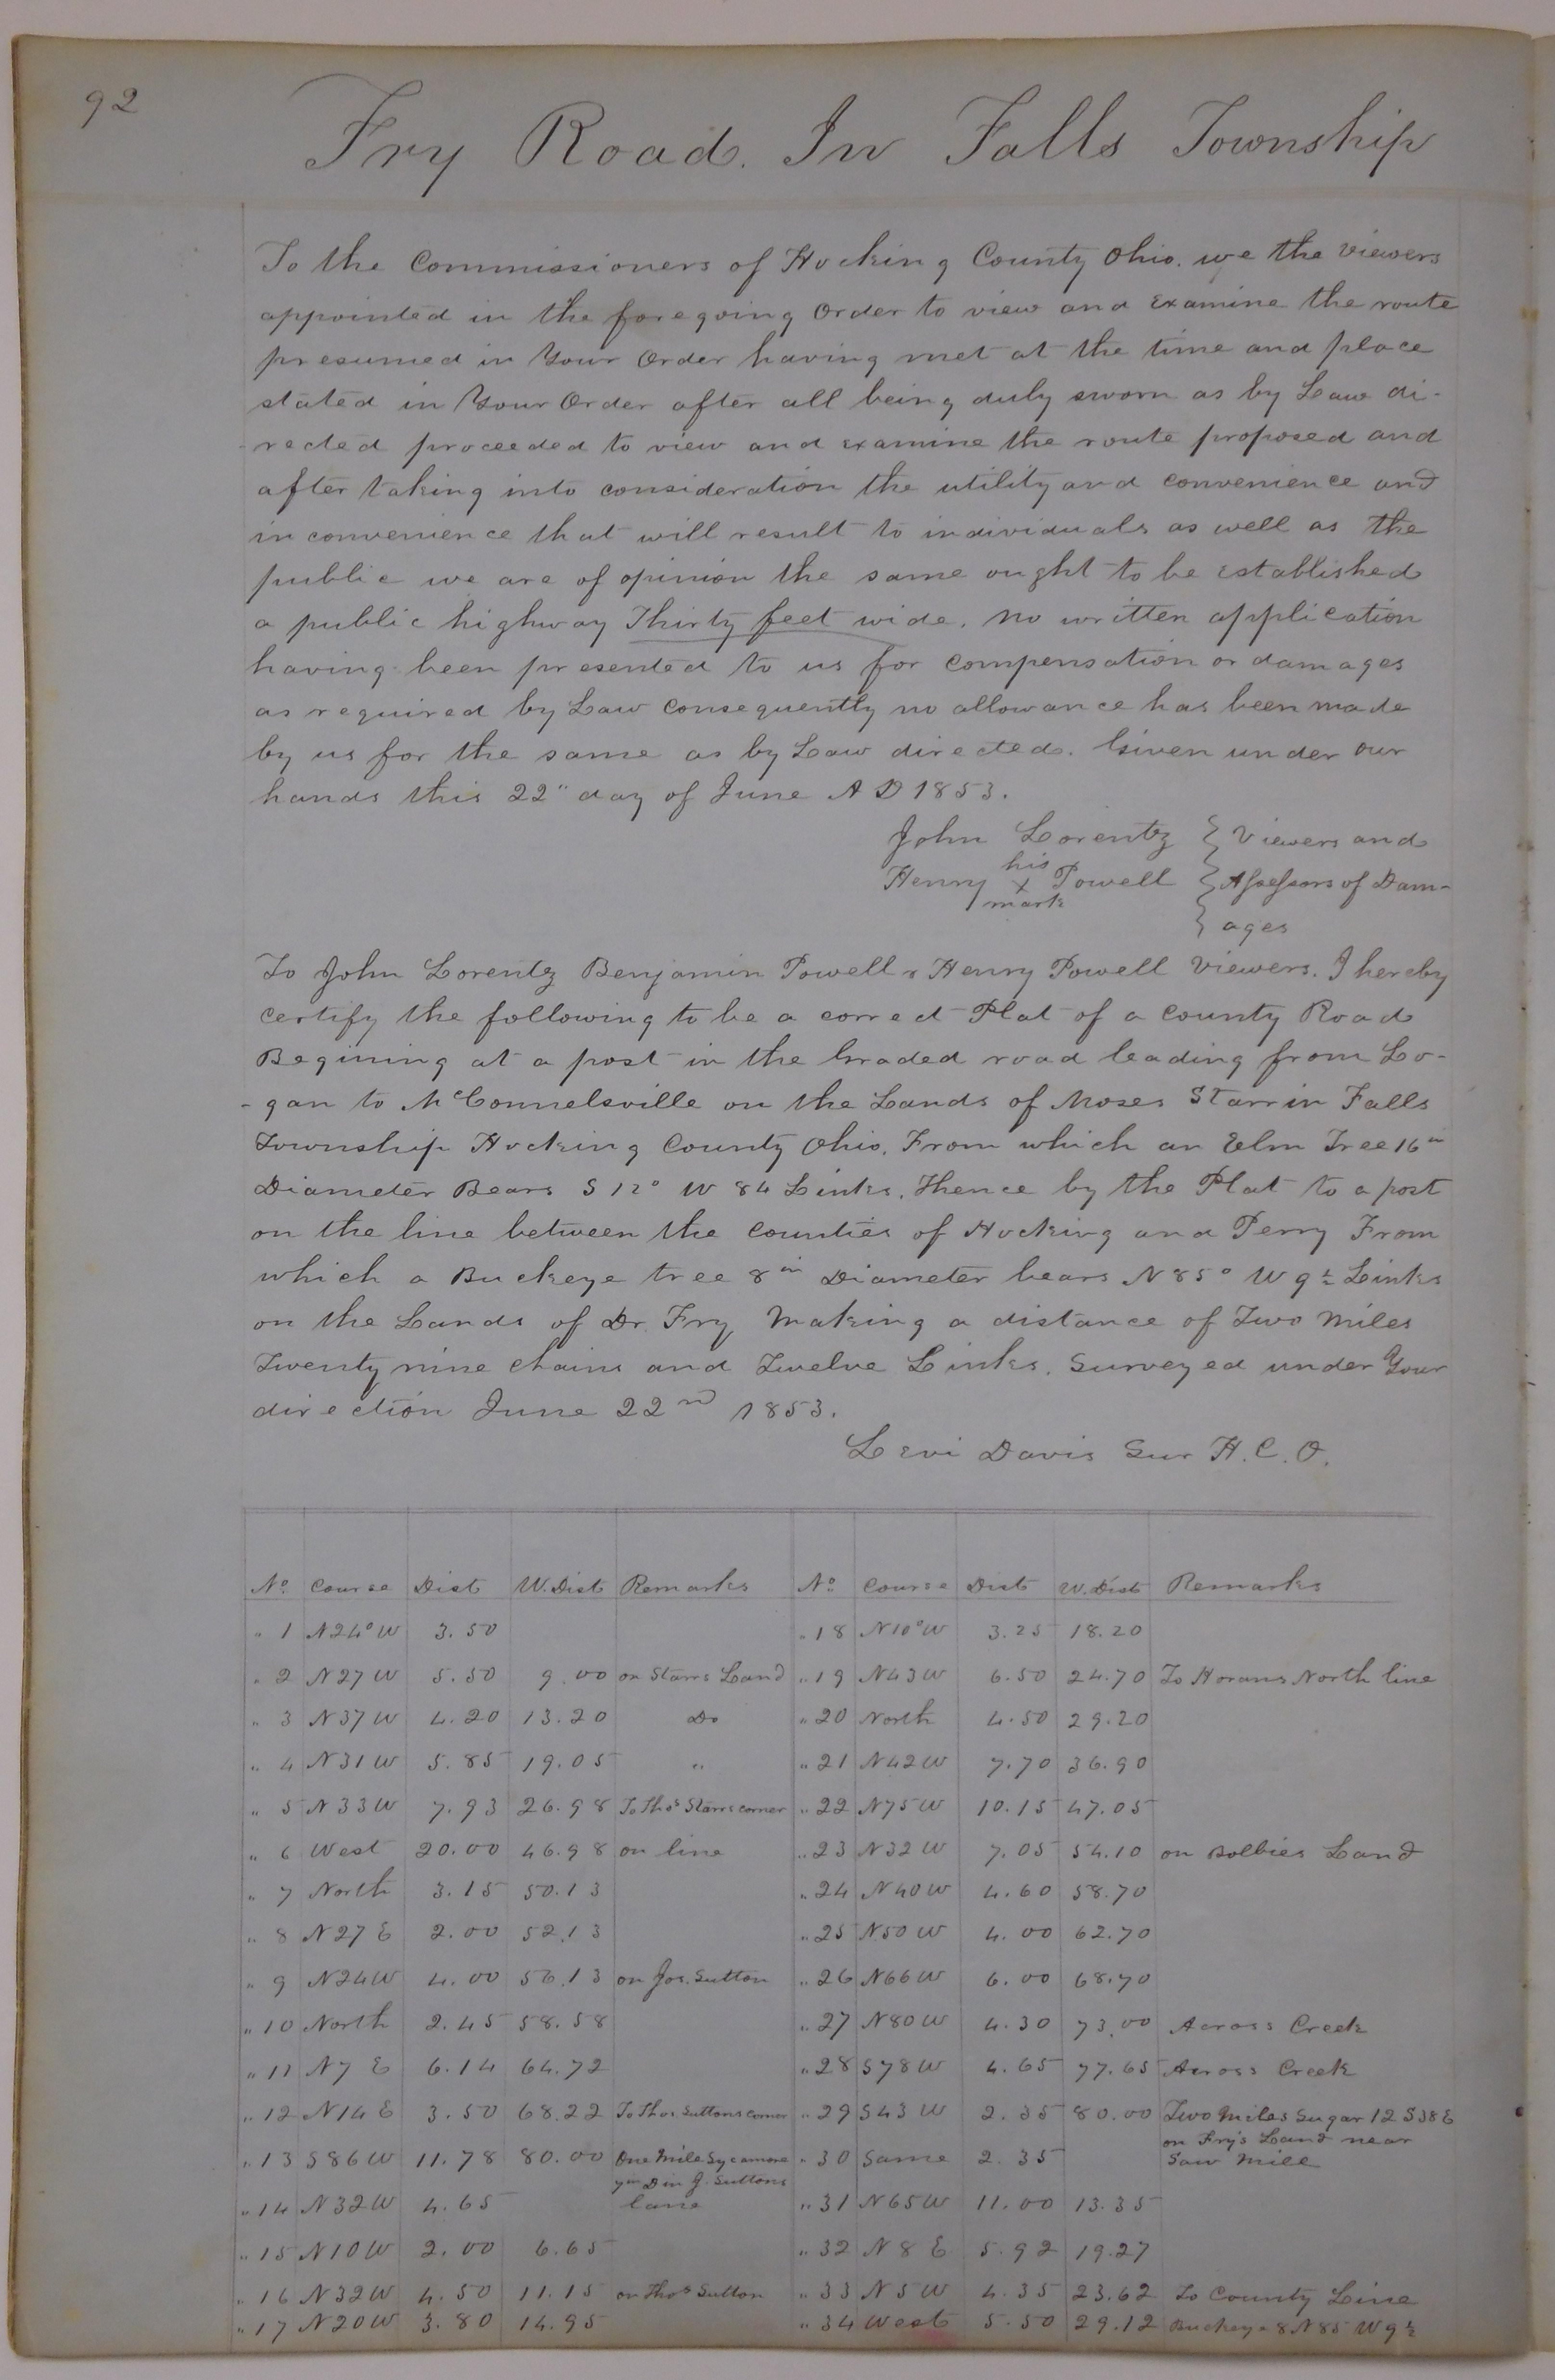 92
Fry Road. In Falls Township
To the Commissioners of Hocking County Ohio. we the viewers
appointed in the foregoing order to view and Examine the route
presumed in Your Order having met at the time and place
stated in Your Order after all being duly sworn as by Law di-
-rected proceeded to view and examine the route proposed and
after taking into consideration the utility and convenience and
inconvenience that will result to individuals as well as the
public we are of opinion the same ought to be Established
a public highway Thirty feet wide. no written application
having been presented to us for compensation or damages
as required by Law consequently no allowance has been made
by us for the same as by Law directed. Given under our
hands this 22" day of June A D 1853.
John Lorentz } Viewers and
Henry his x mark Powell } Assessors of Dam-
} ages
To John Lorentz Benjamin Powell & Henry Powell Viewers. I hereby
certify the following to be a correct Plat of a County Road
Begining at a post in the Graded road leading from Lo-
-gan to McConnelsville on the Lands of Moses Starr in Falls
Township Hocking County Ohio. From which an Elm Tree 16 in
Diameter Bears S 12° W 84 Links. Thence by the Plat to a post
on the line between the Counties of Hocking and Perry From
which a Buckeye tree 8 in Diameter bears N 85° W 9½ Links
on the Lands of Dr. Fry Making a distance of Two Miles
Twenty nine chains and Twelve Links. Surveyed under Your
direction June 22nd 1853.
Levi Davis Sur H. C. O.
No. Course Dist W. Dist Remarks No. Course Dist W. Dist Remarks
" 1 N24°W 3.50 " 18 N10°W 3.25 18.20
" 2 N27W 5.50 9.00 on Starrs Land " 19 N43W 6.50 24.70 To Horans North line
" 3 N37W 4.20 13.20 Do " 20 North 4.50 29.20
" 4 N31W 5.85 19.05 " " 21 N42W 7.70 36.90
" 5 N33W 7.93 26.98 To Thos Starrs corner " 22 N75W 10.15 47.05
" 6 West 20.00 46.98 on line " 23 N32W 7.05 54.10 on Land
" 7 North 3.15 50.13 " 24 N40W 4.60 58.70
" 8 N27E 2.00 52.13 " 25 N50W 4.00 62.70
" 9 N24W 4.00 56.13 on Jos. Sutton " 26 N66W 6.00 68.70
" 10 North 2.45 58.58 " 27 N80W 4.30 73.00 Across Creek
" 11 N7E 6.14 64.72 " 28 S78W 4.65 77.65 Across Creek
" 12 N14E 3.50 68.22 To Thos Suttons corner " 29 S43W 2.35 80.00 Two Miles Sugar 12 S38E
on Fry's Land near
" 13 S86W 11.78 80.00 One Mile Sycamore " 30 Same 2.35 Saw Mill
D in J. Suttons
" 14 N32W 4.65 lane " 31 N65W 11.00 13.35
" 15 N10W 2.00 6.65 " 32 N8E 5.92 19.27
" 16 N32W 4.50 11.15 on Thos Sutton " 33 N5W 4.35 23.62 To County Line
" 17 N20W 3.80 14.95 " 34 West 5.50 29.12 Buckeye 8 N85 W 9½